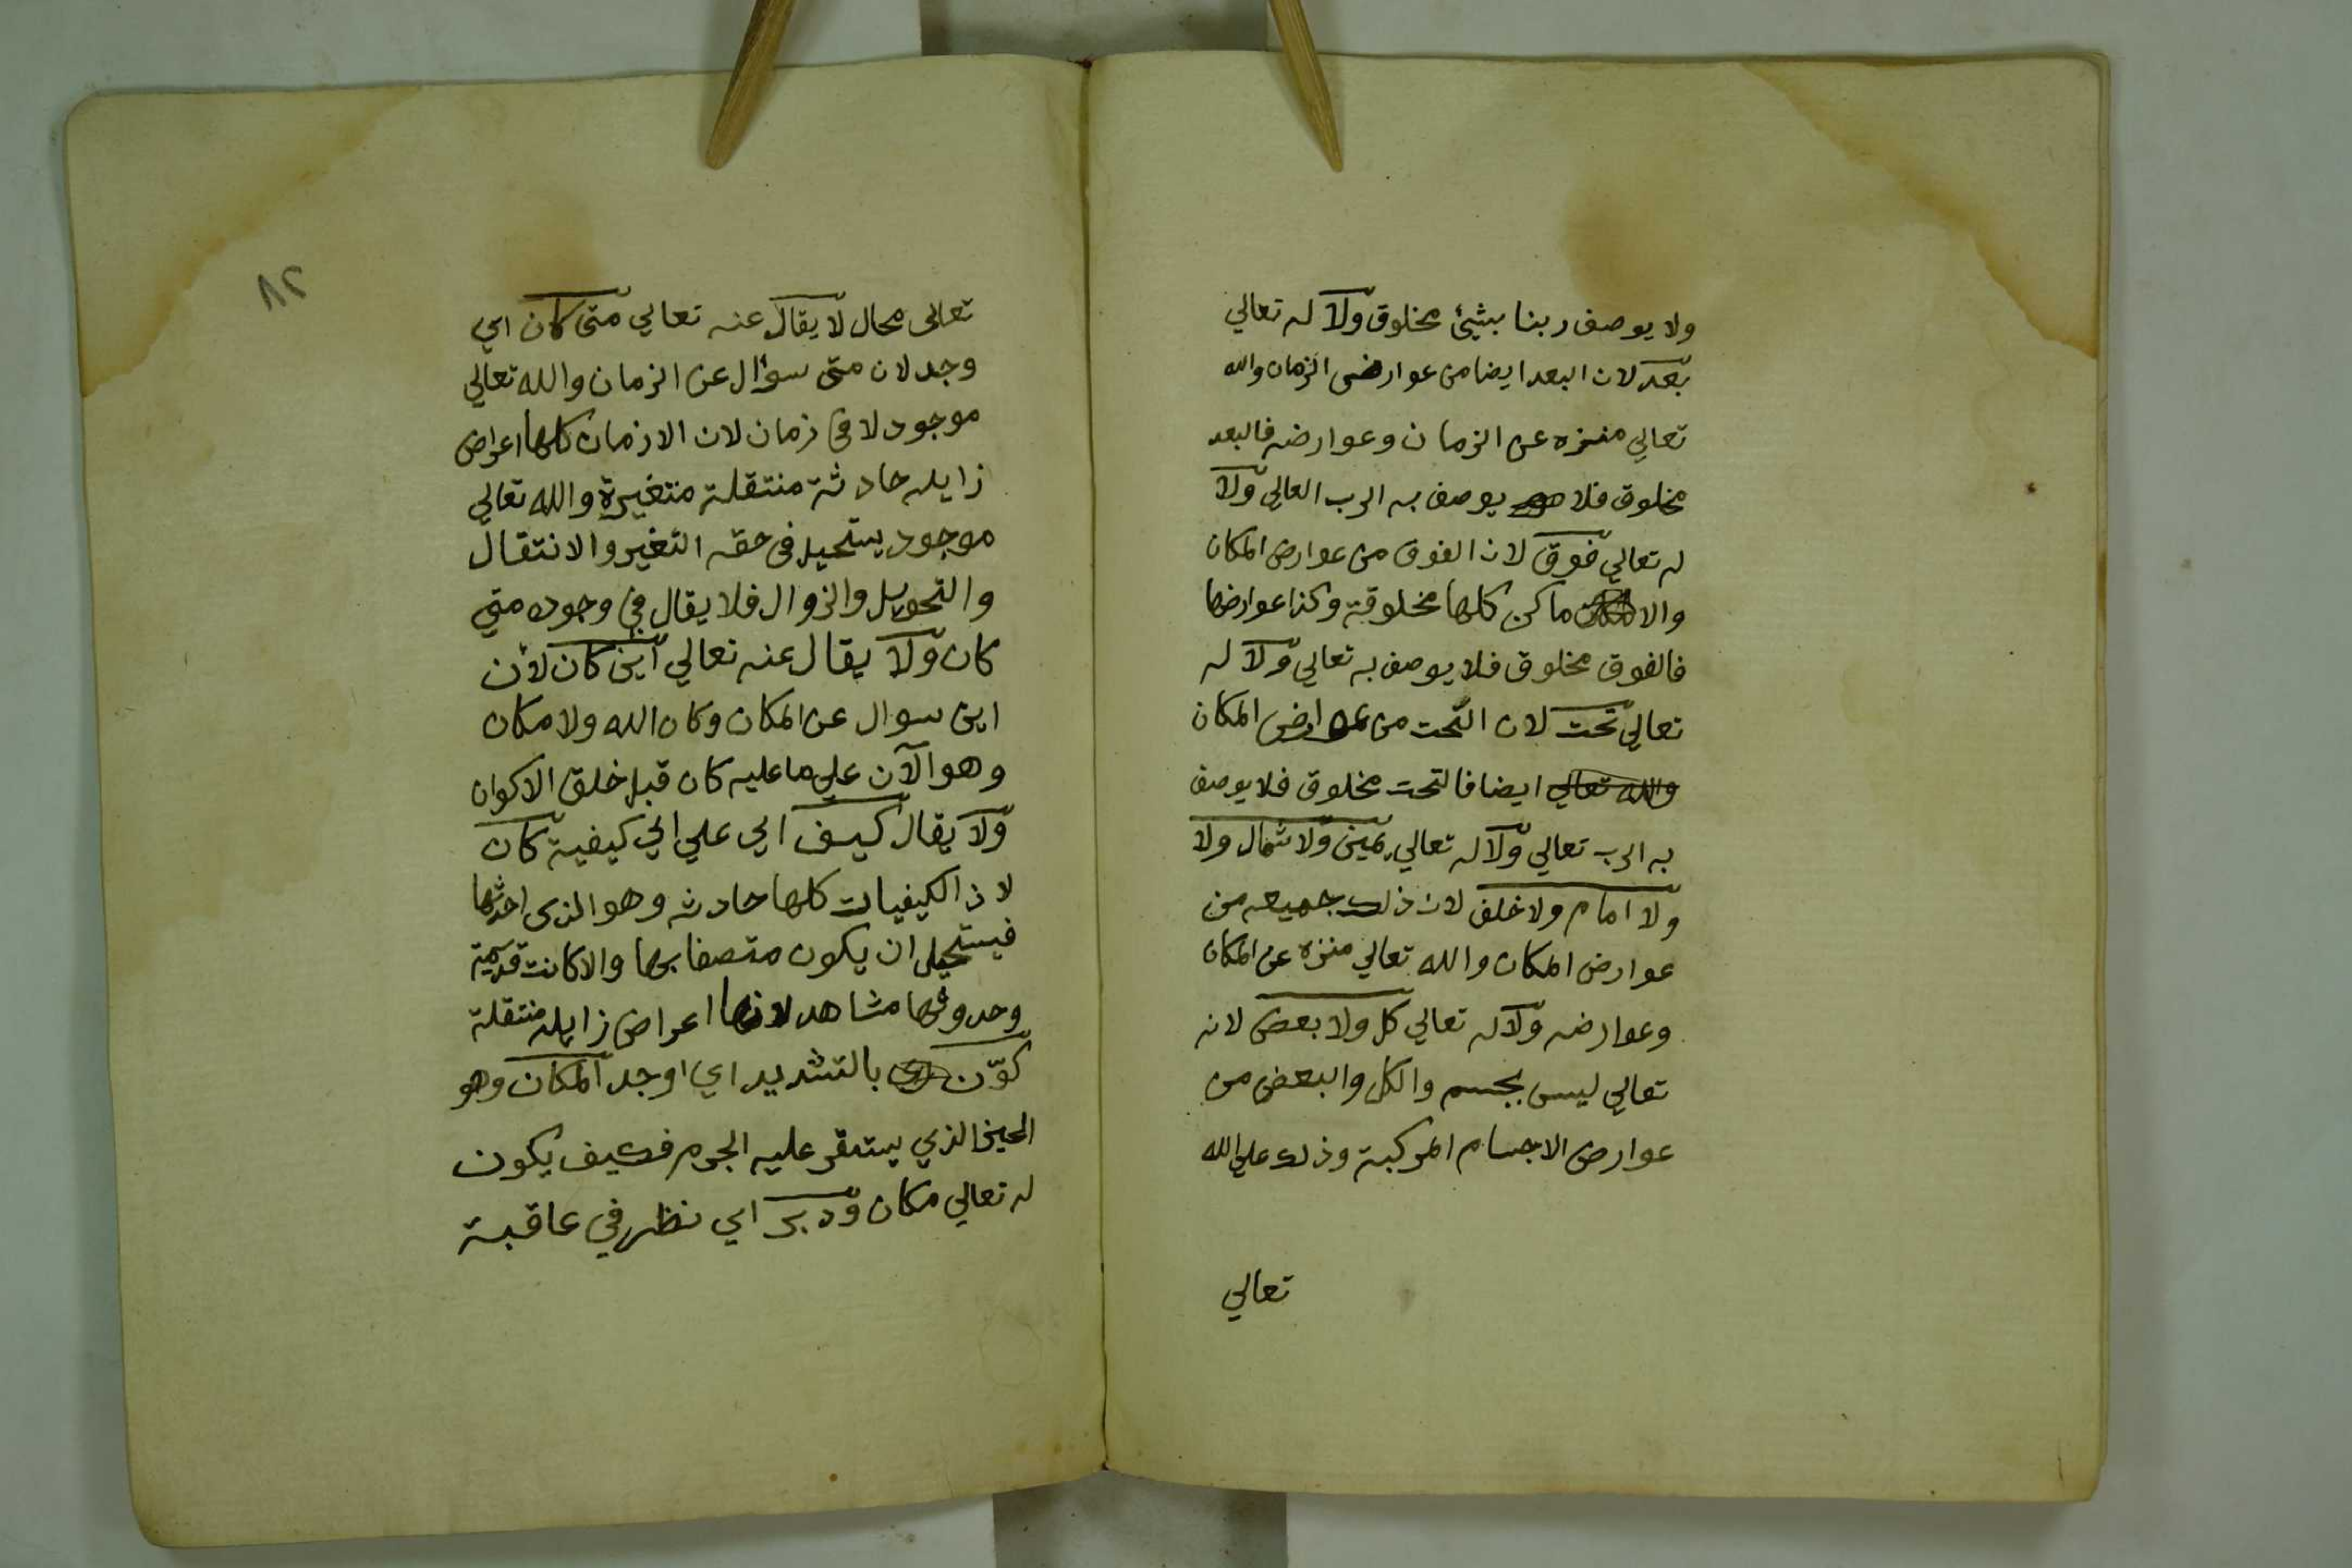 ولا يوصف ربنا بشيئ مخلوق ولا له تعالي
بعد لان البعد ايضا من عوارض الزمان والله
تعالي منزه عن الزمان وعوارضه فالبعد
مخلوق فلا يوصف به الرب العالي ولا
له تعالي فوق لان الفوق من عوارض المكان
والا ماكن كلها مخلوقة وكذا عوارضها
فالفوق مخلوق فلا يوصف به تعالي ولا له
تعالي تحت لان التحت من عوارض المكان
والله تعالي ايضا فالتحت مخلوق فلا يوصف
به الرب تعالي ولا له تعالي يمين ولا شمال ولا
ولا امام ولا خلف لان ذلك جميعه من
عوارض المكان والله تعالي منزه عن المكان
وعوارضه ولا له تعالي كل ولا بعض لانه
تعالي ليس بجسم والكل والبعض من
عوارض الاجسام المركبة وذلك علي الله
تعالي
٨٢
تعالى محال لا يقال عنه تعالي متى كان اي
وجد لان متى سؤال عن الزمان والله تعالي
موجود لا في زمان لان الازمان كلها اعراض
زايله حادثة منتقلة متغيرة والله تعالي
موجود يستحيل في حقه التغير والانتقال
والتحويل والزوال فلا يقال في وجوده متي
كان ولا يقال عنه تعالي اين كان لأن
اين سوال عن المكان وكان الله ولا مكان
وهو الآن علي ما عليه كان قبل خلق الاكوان
ولا يقال كيف اي علي اي كيفية كان
لان الكيفيات كلها حادثه وهو الذى احدثها
فيستحيل ان يكون متصفا بها والا كانت قديمة
وحدوثها مشاهد لانها اعراض زايله منتقلة
كوّن بالتشديد اي اوجد المكان وهو
الحيز الذي يستقر عليه الجرم فكيف يكون
له تعالي مكان ودبر اي نظر في عاقبة